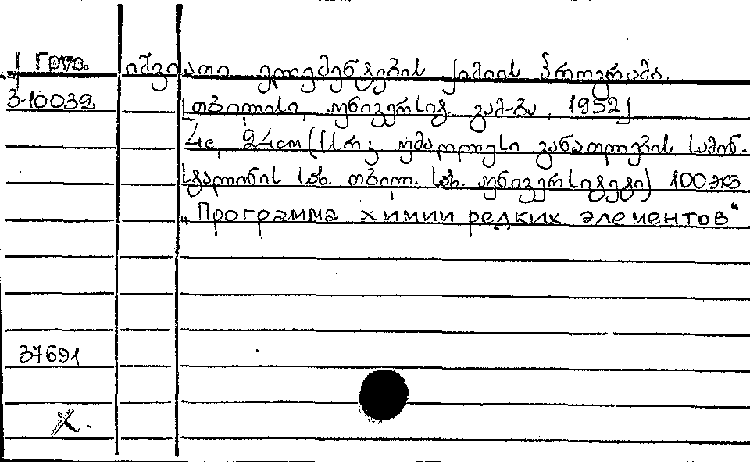 Груз. იშვიათი ელემენტების ქიმიის პროგრამა.
3-10039 [თბილისი, უნივერსიტ. გამ-ბა, 1952]
4с, 24cm (სსრკ უმაღლესი განათლების სამინ.
სტალინის სახ. თბილ. სახ. უნივერსიტეტი) 100экз
„Программа химии редких элементов“
37691
X.